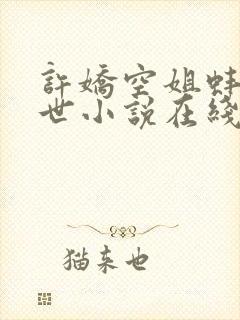 許嬌空姐蚌
世小說在綫
猫来也